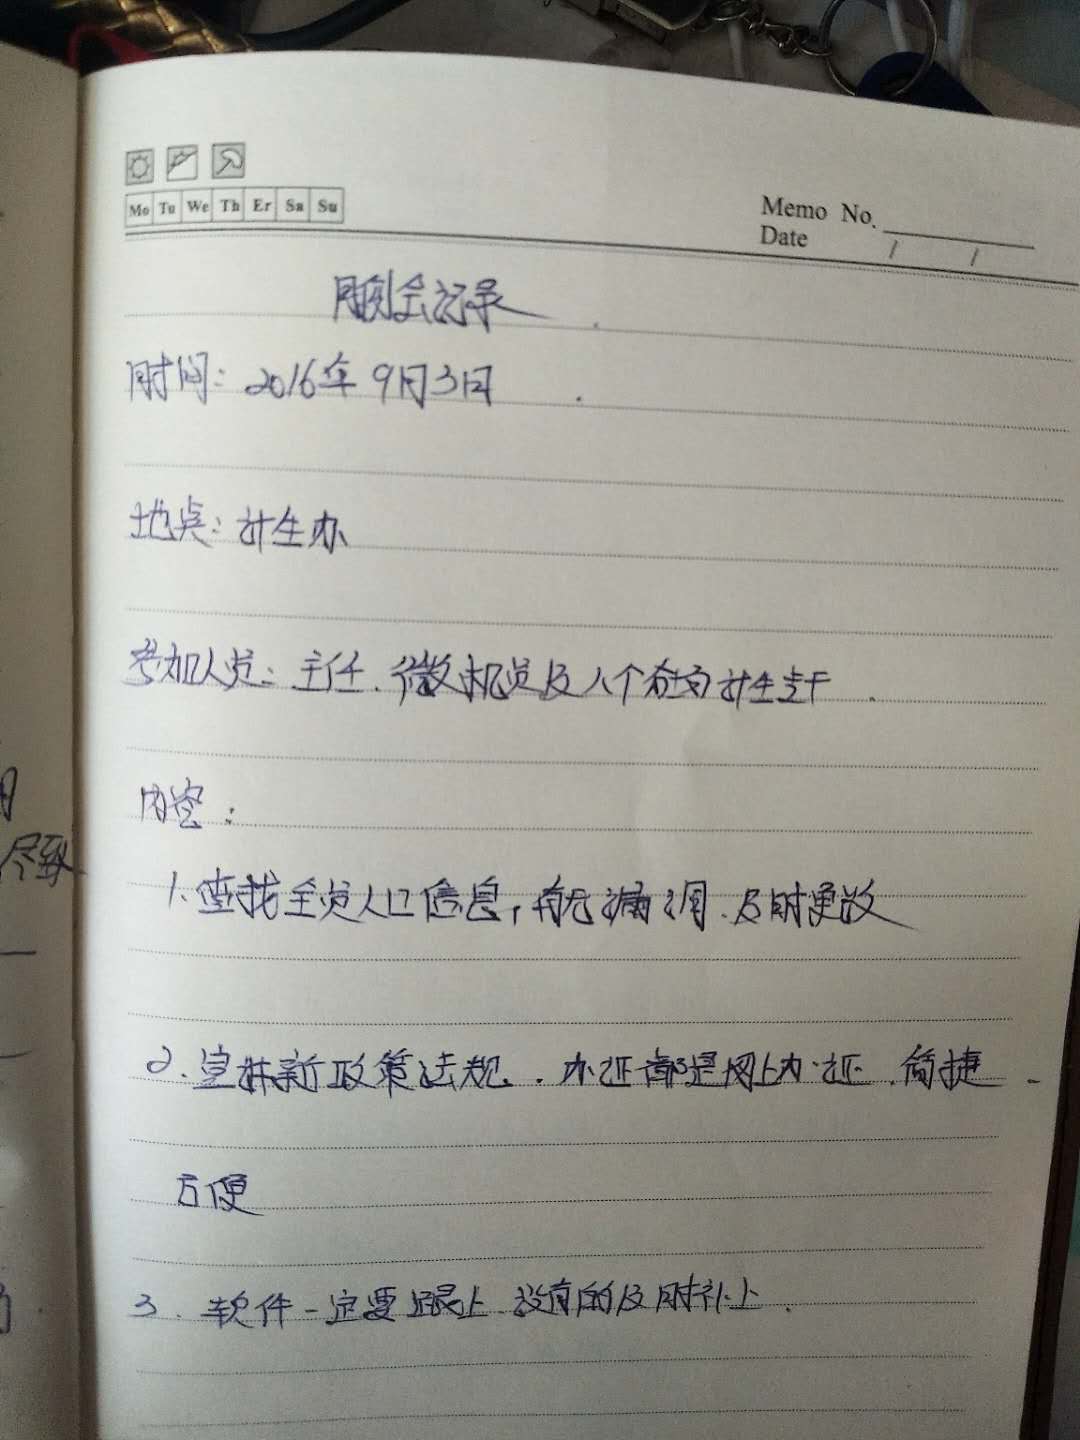 Mo Tu We Th Er Sa Su
Memo No.
Date / /
周例会记录
时间：2016年9月3日
地点：计生办
参加人员：主任、微机员及八个社区计生专干
内容：
1.查找全员人口信息，有无漏洞、及时更改
2.宣传新政策法规。办证都是网上办证、简捷
方便
3.软件一定要跟上 没有的及时补上.
尽到